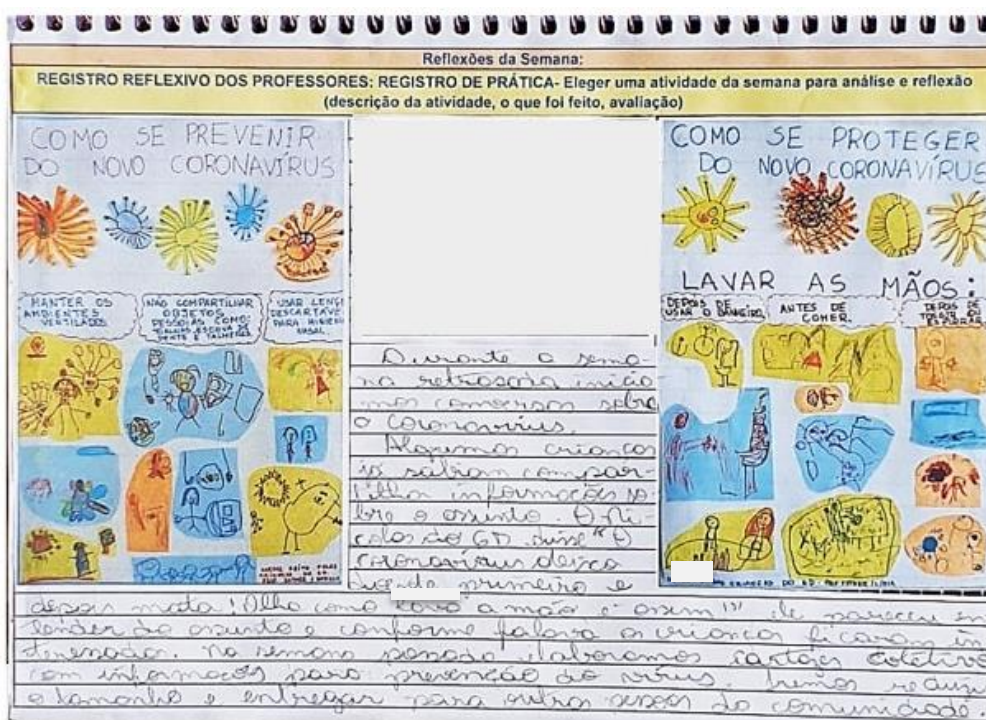 Reflexões da Semana:
REGISTRO REFLEXIVO DOS PROFESSORES: REGISTRO DE PRÁTICA- Eleger uma atividade da semana para análise e reflexão
(descrição da atividade, o que foi feito, avaliação)
COMO SE PREVENIR
DO NOVO CORONAVÍRUS
MANTER OS
AMBIENTES
VENTILADOS
NÃO COMPARTILHAR
OBJETOS
PESSOAIS COMO:
TOALHAS, ESCOVA DE
DENTE E TALHERES
USAR LENÇ
DESCARTÁVE
PARA HIGIEN
NASAL
Durante a sema-
na retrasada inicia
mos conversas sobre
o Coronavírus.
Algumas crianças
já sabiam compar-
tilha informações so-
bre o assunto. O Ni-
colas do GD disse "O
coronavírus deixa
doente primeiro e
depois mata! Olha como lava a mão é assim"
ele pareceu en
tender do assunto e conforme falava as crianças ficaram in
teressadas. Na semana passada elaboramos cartazes coletivo
com informações para prevenção do vírus. Iremos reduzi
o tamanho e entregar para outras pessoas da comunidade.
COMO SE PROTEGER
DO NOVO CORONAVÍRUS
LAVAR AS MÃOS:
DEPOIS DE
USAR O BANHEIRO
ANTES DE
COMER
DEPOIS DE
TOSSIR OU
ESPIRRAR